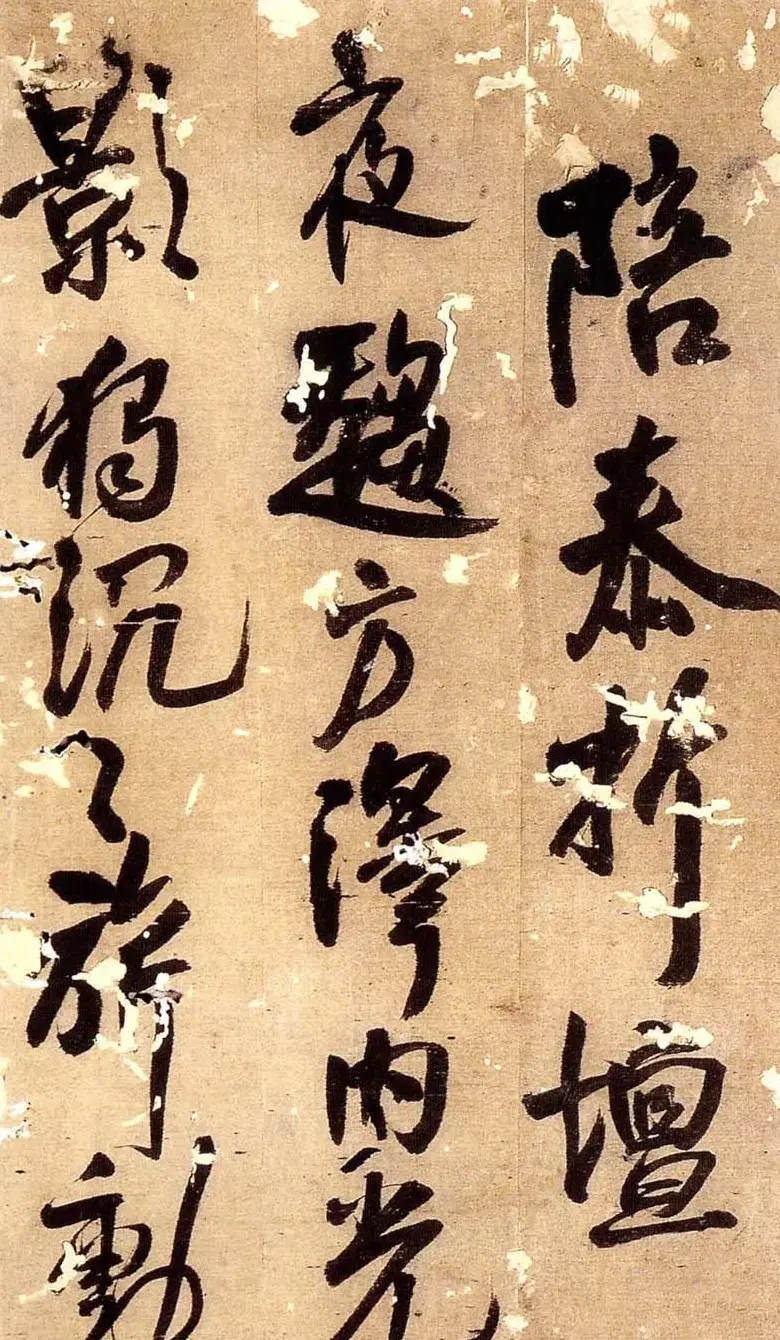 陪泰折壇
夜方澤內光
影獨沉々旂動